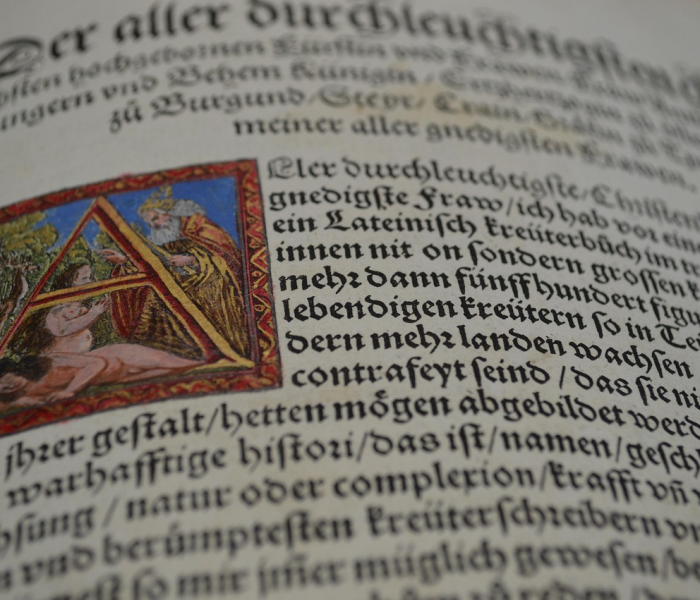 Der aller durchleuchtigsten
hochgebornen Fürstin vnd Frawen
vngern vnd Behem Künigin / Ertzhertzogin
zů Burgund / Steyr / Crain / Gräfin zů
meiner aller gnedigsten Frawen.
Ller durchleuchtigste / Christen
gnedigste Fraw / ich hab vor
ein Lateinisch kreüterbůch im
innen nit on sondern grossen
mehr dann fünffhundert figu
lebendigen kreütern so in Te
dern mehr landen wachsen
contrafeyt seind / das sie ni
jhrer gestalt / hetten mögen abgebildet werd
warhafftige histori / das ist / namen / gesch
hsung / natur oder complexion / krafft vñ
vnd berümptesten kreüterschreibern
so mir jm̃er müglich gewesen /